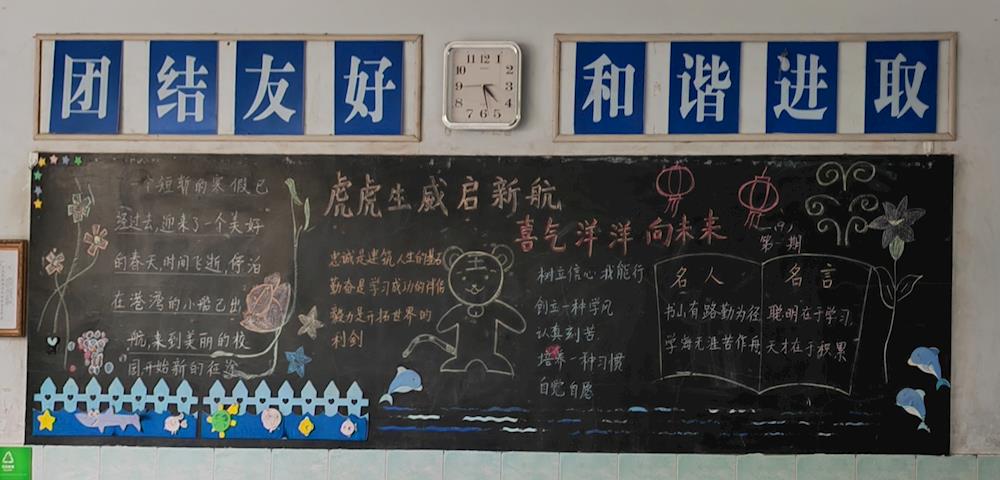 团结友好
和谐进取
12
11
1
10
2
9
3
8
4
7
6
5
一个短暂的寒假已
经过去,迎来了一个美好
的春天,时间飞逝,停泊
在港湾的小船已出
航,来到美丽的校
园开始新的征途
虎虎生威启新航
喜气洋洋向未来
第一期
忠诚是建筑人生的基石
勤奋是学习成功的伴侣
毅力是开拓世界的
利剑
王
树立信心 我能行
创立一种学风
认真刻苦
培养一种习惯
自觉自愿
名人
书山有路勤为径
学海无涯苦作舟
名言
聪明在于学习,
天才在于积累